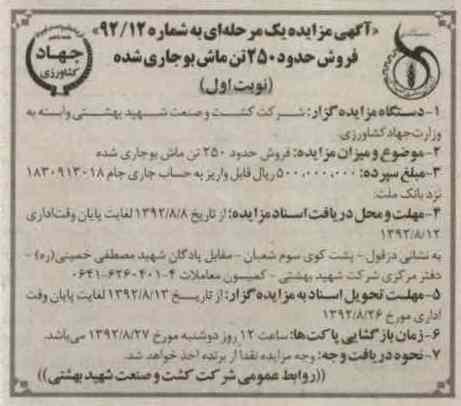 «آگهی مزایده یک مرحله‌ای به شماره ۹۲/۱۲»
فروش حدود ۲۵۰ تن ماش بوجاری شده
(نوبت اول)
جهاد
کشاورزی
۱-دستگاه مزایده گزار: شرکت کشت و صنعت شهید بهشتی وابسته به
وزارت جهاد کشاورزی.
۲-موضوع و میزان مزایده: فروش حدود ۲۵۰ تن ماش بوجاری شده
۳-مبلغ سپرده: ۵۰۰,۰۰۰,۰۰۰ ریال قابل واریز به حساب جاری جام ۱۸۳۰۹۱۳۰۱۸
نزد بانک ملت.
۴-مهلت و محل دریافت اسناد مزایده: از تاریخ ۱۳۹۲/۸/۸ لغایت پایان وقت اداری
۱۳۹۲/۸/۱۲
به نشانی دزفول - پشت کوی سوم شعبان - مقابل پادگان شهید مصطفی خمینی(ره) -
دفتر مرکزی شرکت شهید بهشتی - کمیسیون معاملات ۴-۶۲۶۰۴۰۱-۰۶۴۱
۵-مهلت تحویل اسناد به مزایده گزار: از تاریخ ۱۳۹۲/۸/۱۳ لغایت پایان وقت
اداری مورخ ۱۳۹۲/۸/۲۶
۶-زمان بازگشایی پاکت‌ها: ساعت ۱۲ روز دوشنبه مورخ ۱۳۹۲/۸/۲۷ می‌باشد.
۷-نحوه دریافت وجه: وجه مزایده نقدا از برنده اخذ خواهد شد.
((روابط عمومی شرکت کشت و صنعت شهید بهشتی))